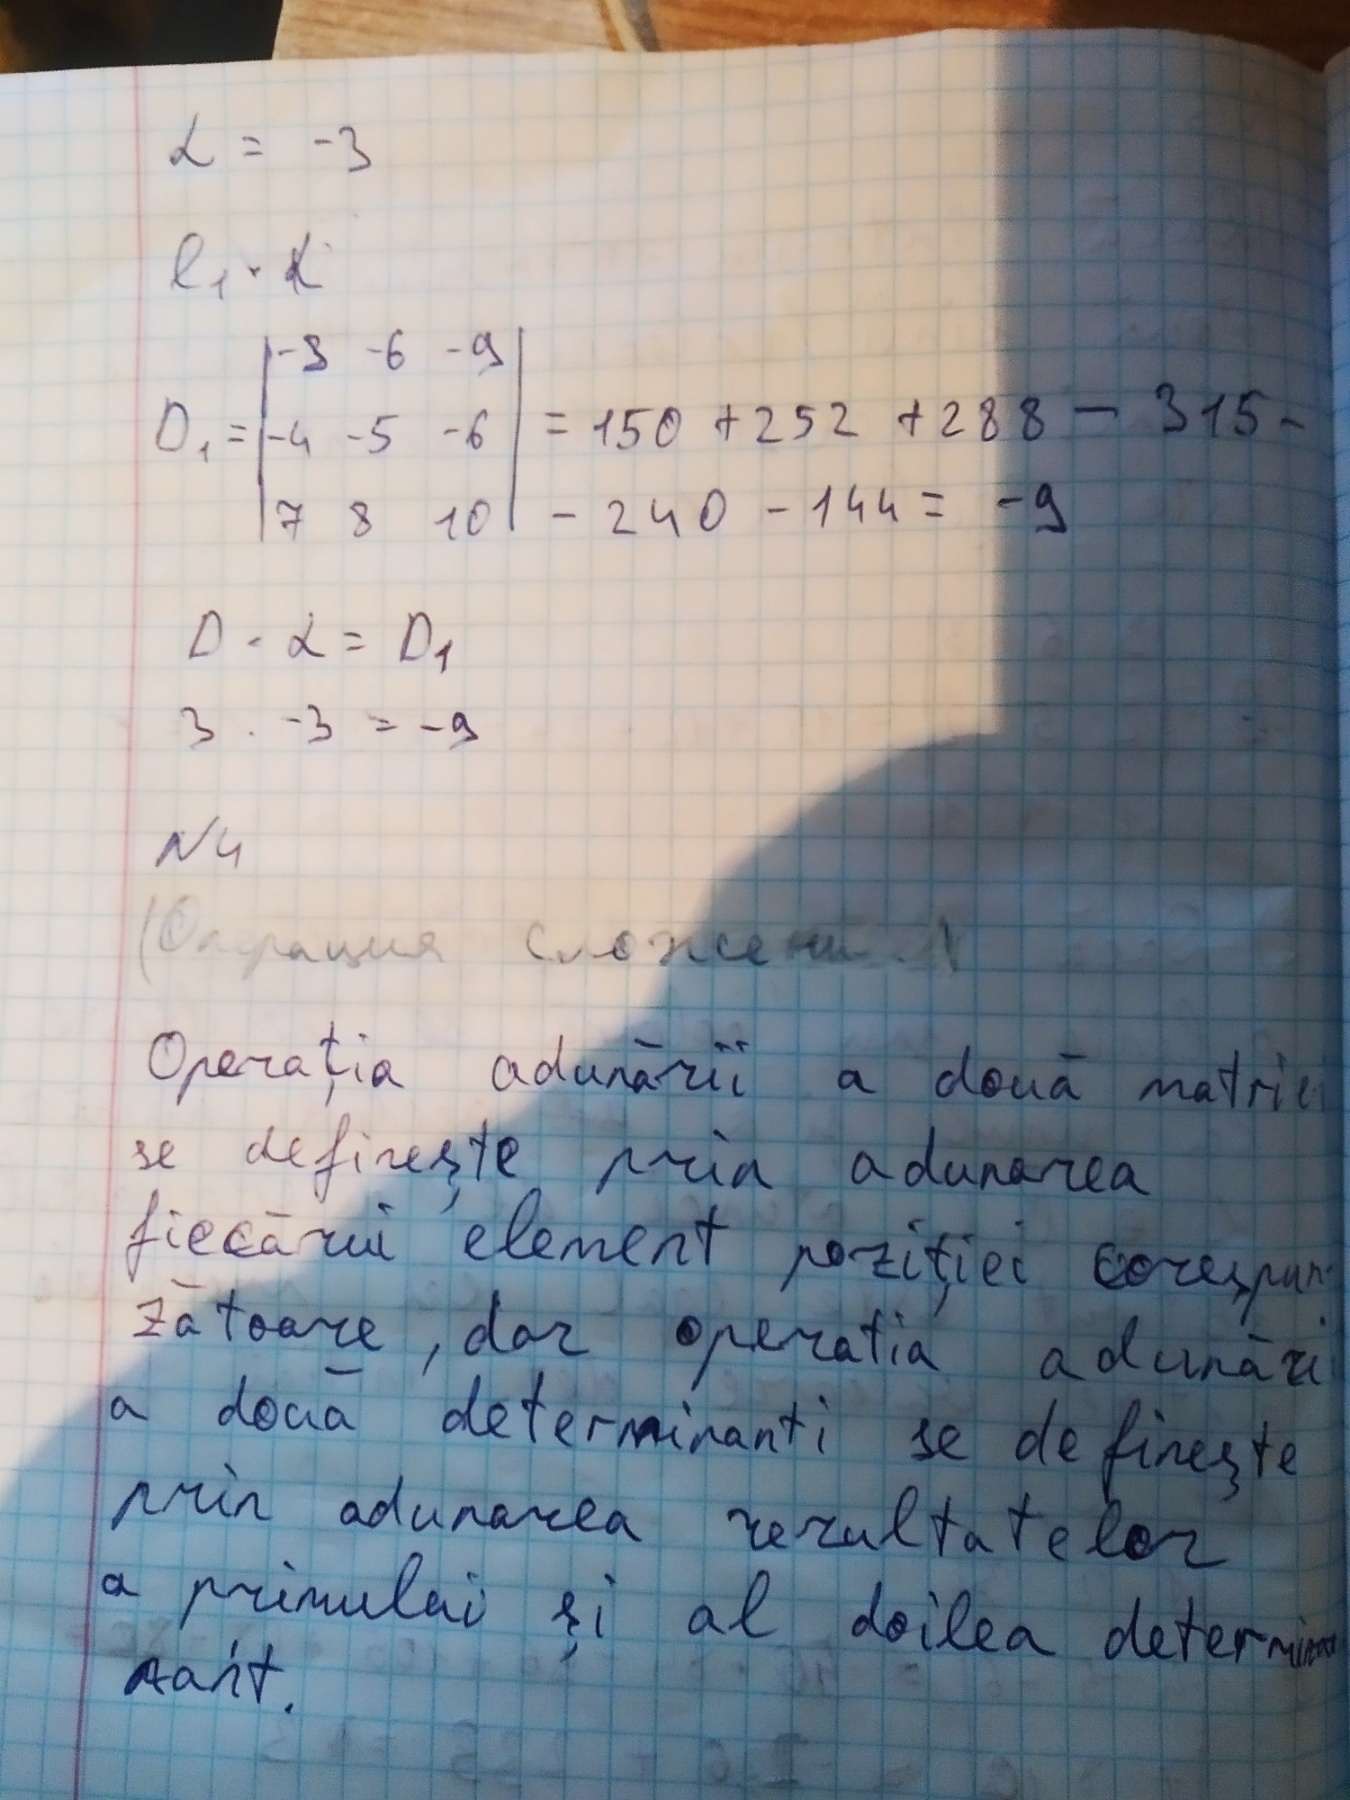 α = -3
l₁ · α
-3 -6 -9
D₁ = -4 -5 -6 = 150 + 252 + 288 - 315 -
7 8 10 - 240 - 144 = -9
D · α = D₁
3 · -3 = -9
N4
(Операция сложения)
Operația adunării a două matrici
se definește prin adunarea
fiecărui element poziției corespun-
zătoare, dar operatia adunări
a două determinanti se definește
prin adunarea rezultatelor
a primului și al doilea determi
nant.